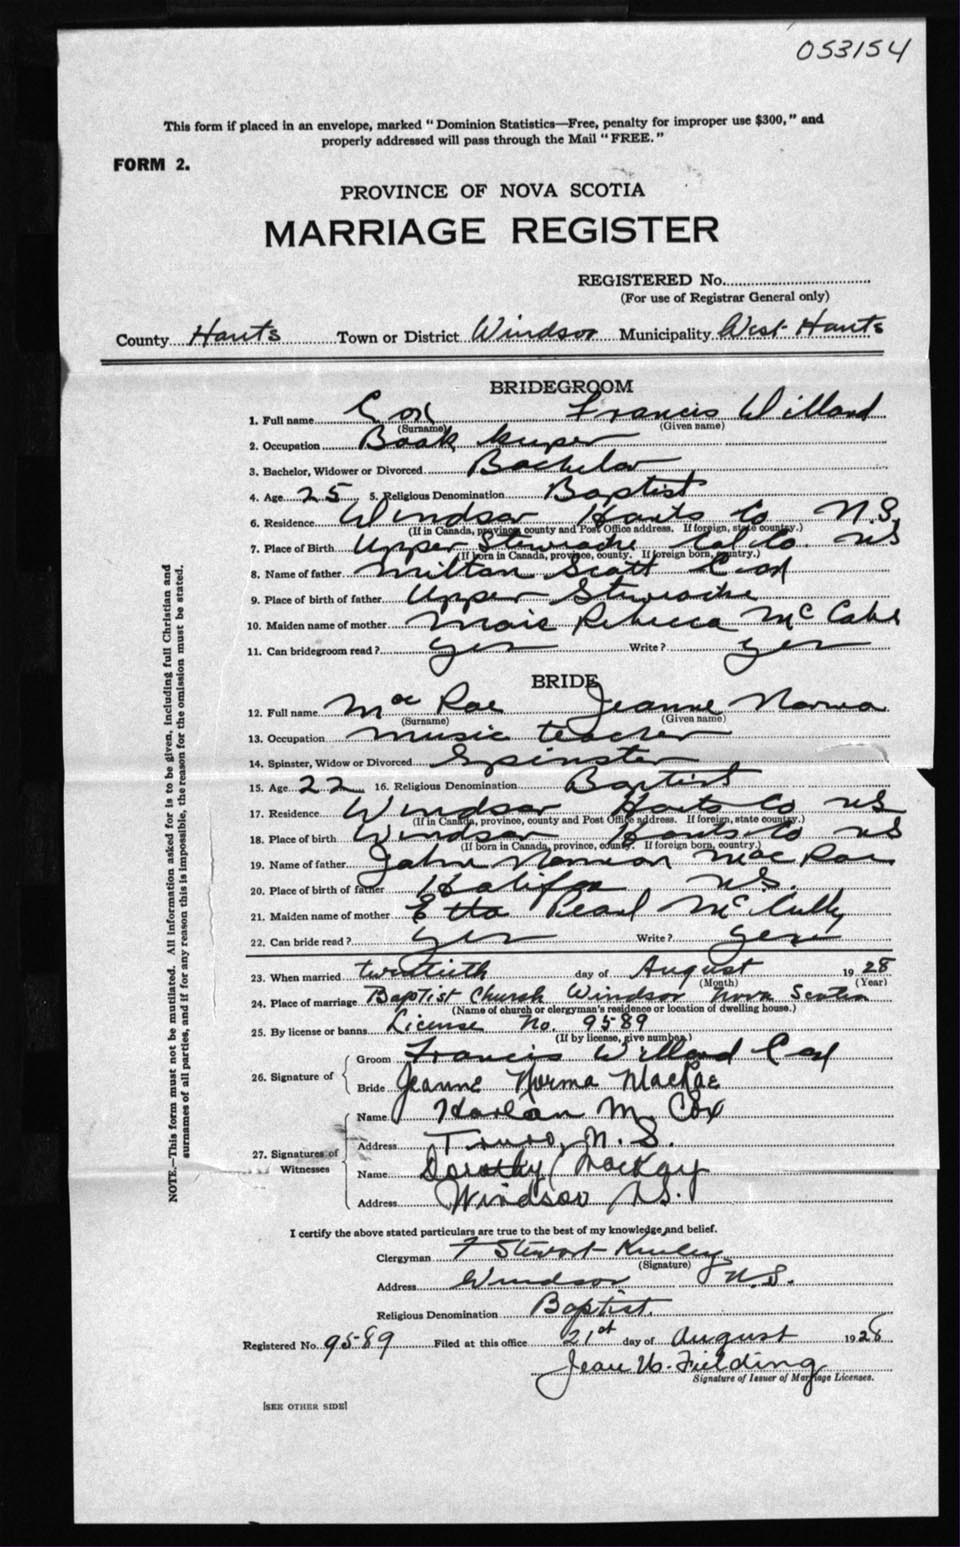 053154
This form if placed in an envelope, marked "Dominion Statistics—Free, penalty for improper use $300," and
properly addressed will pass through the Mail "FREE."
FORM 2.
PROVINCE OF NOVA SCOTIA
MARRIAGE REGISTER
REGISTERED No.
(For use of Registrar General only)
County Hants Town or District Windsor Municipality West Hants
BRIDEGROOM
1. Full name Cox Francis Willard
(Surname) (Given name)
2. Occupation Book keeper
3. Bachelor, Widower or Divorced Bachelor
4. Age 25 5. Religious Denomination Baptist
6. Residence Windsor Hants Co N.S.
(If in Canada, province, county and Post Office address. If foreign, state country.)
7. Place of Birth Upper Stewiacke Col. Co. NS
(If born in Canada, province, county. If foreign born, country.)
8. Name of father Milton Scott Cox
9. Place of birth of father Upper Stewiacke
10. Maiden name of mother Rebecca McCabe
11. Can bridegroom read? yes Write? yes
BRIDE
12. Full name MacRae Jeanne Norma
(Surname) (Given name)
13. Occupation music teacher
14. Spinster, Widow or Divorced Spinster
15. Age 22 16. Religious Denomination Baptist
17. Residence Windsor Hants Co NS
(If in Canada, province, county and Post Office address. If foreign, state country.)
18. Place of birth Windsor Hants Co NS
(If born in Canada, province, county. If foreign born, country.)
19. Name of father John Norman MacRae
20. Place of birth of father Halifax N.S.
21. Maiden name of mother Etta Pearl McCully
22. Can bride read? yes Write? yes
23. When married twentieth day of August 1928
(Month) (Year)
24. Place of marriage Baptist Church Windsor Nova Scotia
(Name of church or clergyman's residence or location of dwelling house.)
25. By license or banns License No. 9589
(If by license, give number.)
26. Signature of Groom Francis Willard Cox
Bride Jeanne Norma MacRae
27. Signatures of Witnesses
Name Harlan M. Cox
Address Truro, N.S.
Name Dorothy MacKay
Address Windsor N.S.
I certify the above stated particulars are true to the best of my knowledge and belief.
Clergyman F Stewart Kinley
(Signature)
Address Windsor N.S.
Religious Denomination Baptist
Registered No. 9589 Filed at this office 21st day of August 1928
Jean W. Fielding
Signature of Issuer of Marriage Licenses.
[SEE OTHER SIDE]
NOTE.—This form must not be mutilated. All information asked for is to be given, including full Christian and
surnames of all parties, and if for any reason this is impossible, the reason for the omission must be stated.